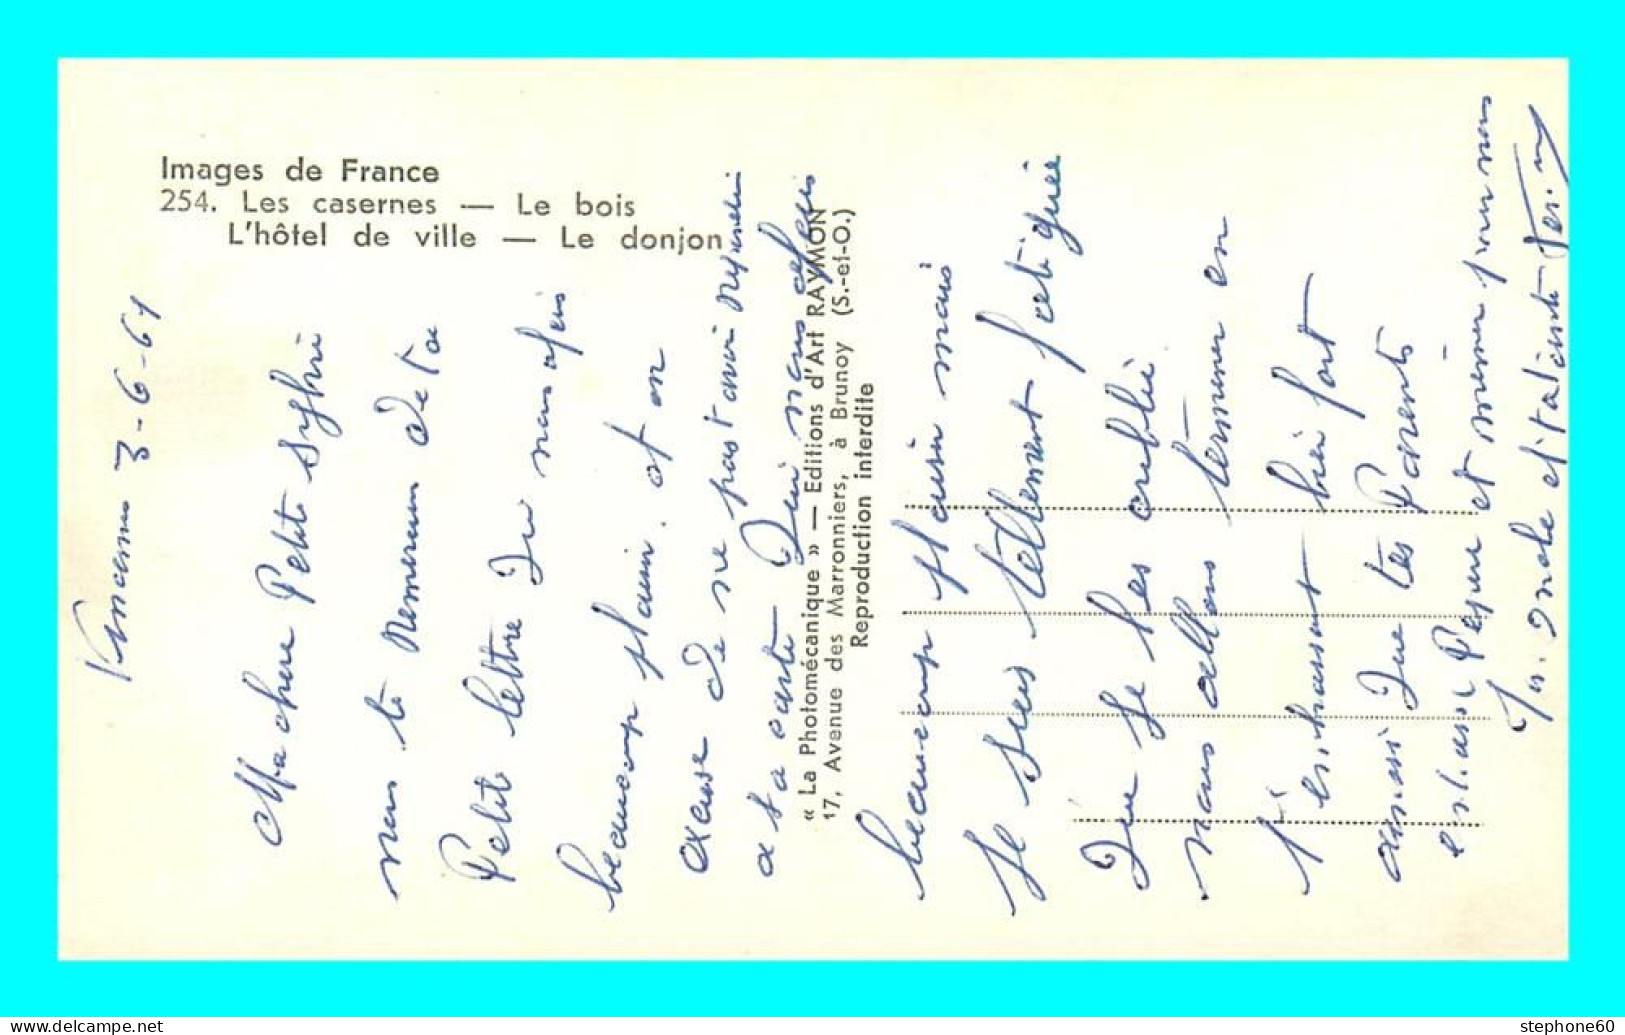 Images de France
254. Les casernes — Le bois
L'hôtel de ville — Le donjon
« La Photomécanique » — Editions d'Art RAYMON
17, Avenue des Marronniers, à Brunoy (S.-et-O.)
Reproduction interdite
3-6-61
Ma chere Petite Sylvie
nous te de ta
Petite lettre
beaucoup plaisir. et on
excuse de ne pas t avoir
a ta carte Qui nous
beaucoup plaisir mais
Je suis tellement fatiguée
Que Je les oublie
nous allons terminer en
t'embrassant bien fort
ainsi Que tes Parents
et même pour nous
stephone60